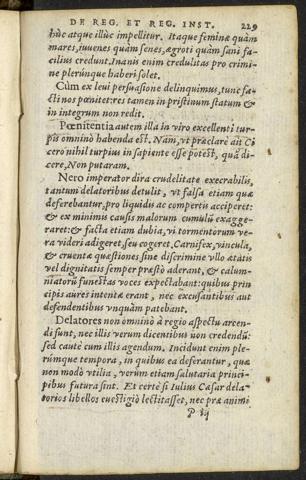 DE REG. ET REG. INST. 229
húc atque illùc impellitur. Itaque feminæ quàm
mares, iuuenes quàm senes, ægroti quàm sani fa-
cilius credunt. Inanis enim credulitas pro crimi-
ne plerúnque haberi solet.
Cùm ex leui persuasione delinquimus, tunc fa-
cti nos pœnitet: res tamen in pristinum statum &
in integrum non redit.
Pœnitentia autem illa in viro excellenti tur-
pis omninò habenda est. Nam, vt præclarè ait Ci
cero nihil turpius in sapiente esse potest, quā di-
cere, Non putaram.
Nero imperator dira crudelitate execrabilis,
tantum delatoribus detulit, vt falsa etiam quæ
deferebantur, pro liquidis ac compertis acciperet:
& ex minimis causis malorum cumulū exagge-
raret: & facta etiam dubia, vi tormentorum ve-
ra videri adigeret, seu cogeret. Carnifex, vincula,
& cruentæ quæstiones sine discrimine vllo ætatis
vel dignitatis semper præstò aderant, & calum-
niatorū funestas voces expectabant: quibus prin-
cipis aures intentæ erant, nec excusantibus aut
defendentibus vnquàm patebant.
Delatores non omninò à regio aspectu arcen-
di sunt, nec illis verum dicentibus non credendū:
sed cautè cum illis agendum. Incidunt enim ple-
rúmque tempora, in quibus ea deferantur, quæ
non modò vtilia, verum etiam salutaria princi-
pibus futura sint. Et certè si Iulius Cæsar dela-
torios libellos euestigiò lectitasset, nec præ animi
P iij